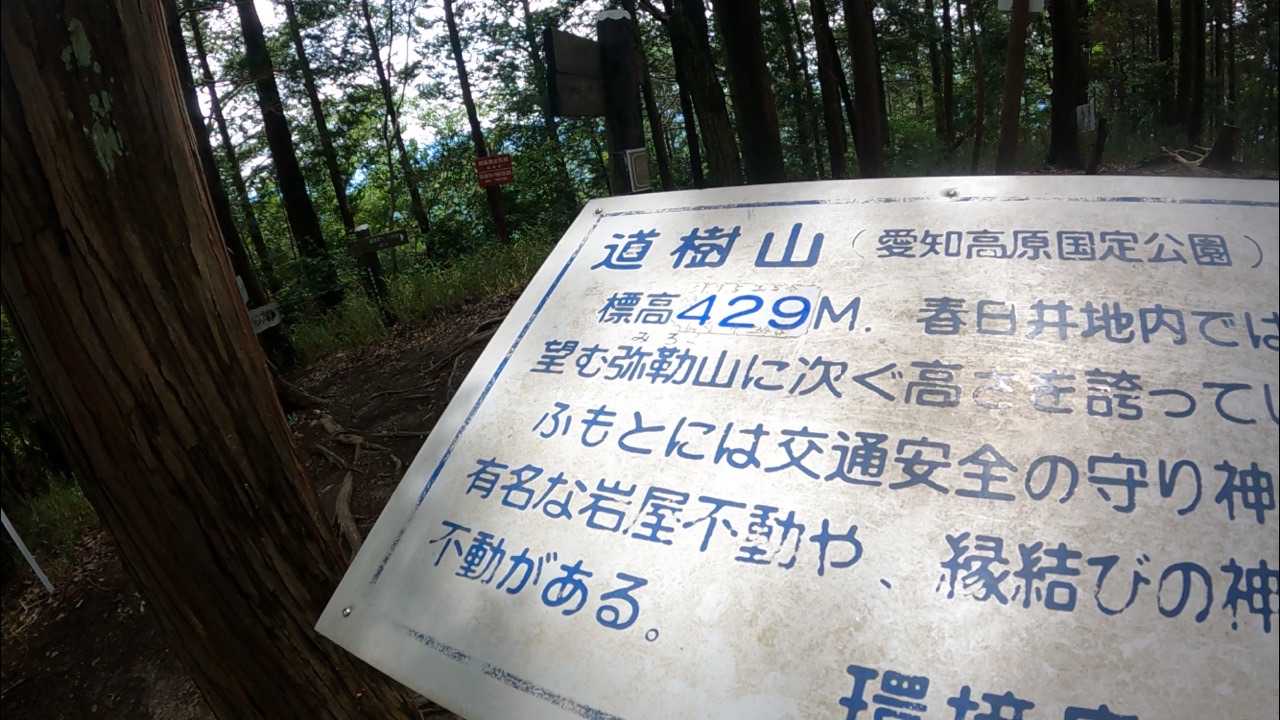 道樹山（愛知高原国定公園）
標高429M. 春日井地内では
みろく
望む弥勒山に次ぐ高さを誇ってい
ふもとには交通安全の守り神
有名な岩屋不動や、縁結びの神
不動がある。
環境